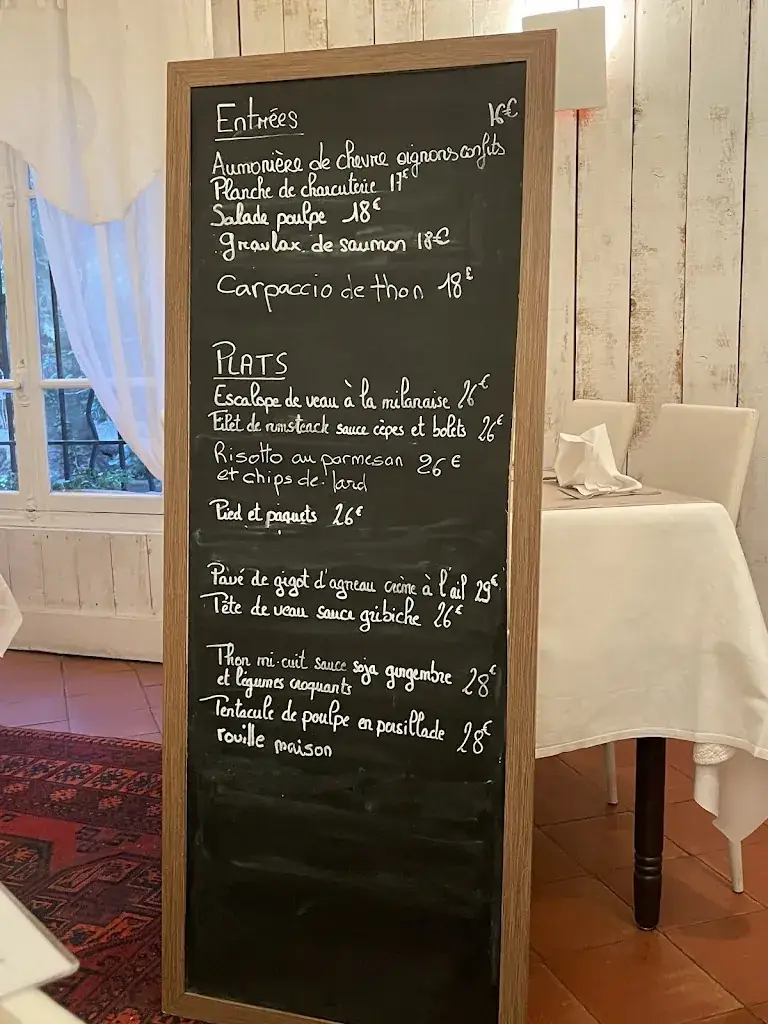 Entrées 16€
Aumonière de chevre oignons confits
Planche de charcuterie 17€
Salade poulpe 18€
gravlax de saumon 18€
Carpaccio de thon 18€
PLATS
Escalope de veau à la milanaise 26€
Filet de rumsteack sauce cèpes et bolets 26€
Risotto au parmesan 26€
et chips de lard
Pied et paquets 26€
Pavé de gigot d'agneau crème à l'ail 29€
Tête de veau sauce gribiche 26€
Thon mi-cuit sauce soja gingembre 28€
et légumes croquants
Tentacule de poulpe en persillade 28€
rouille maison